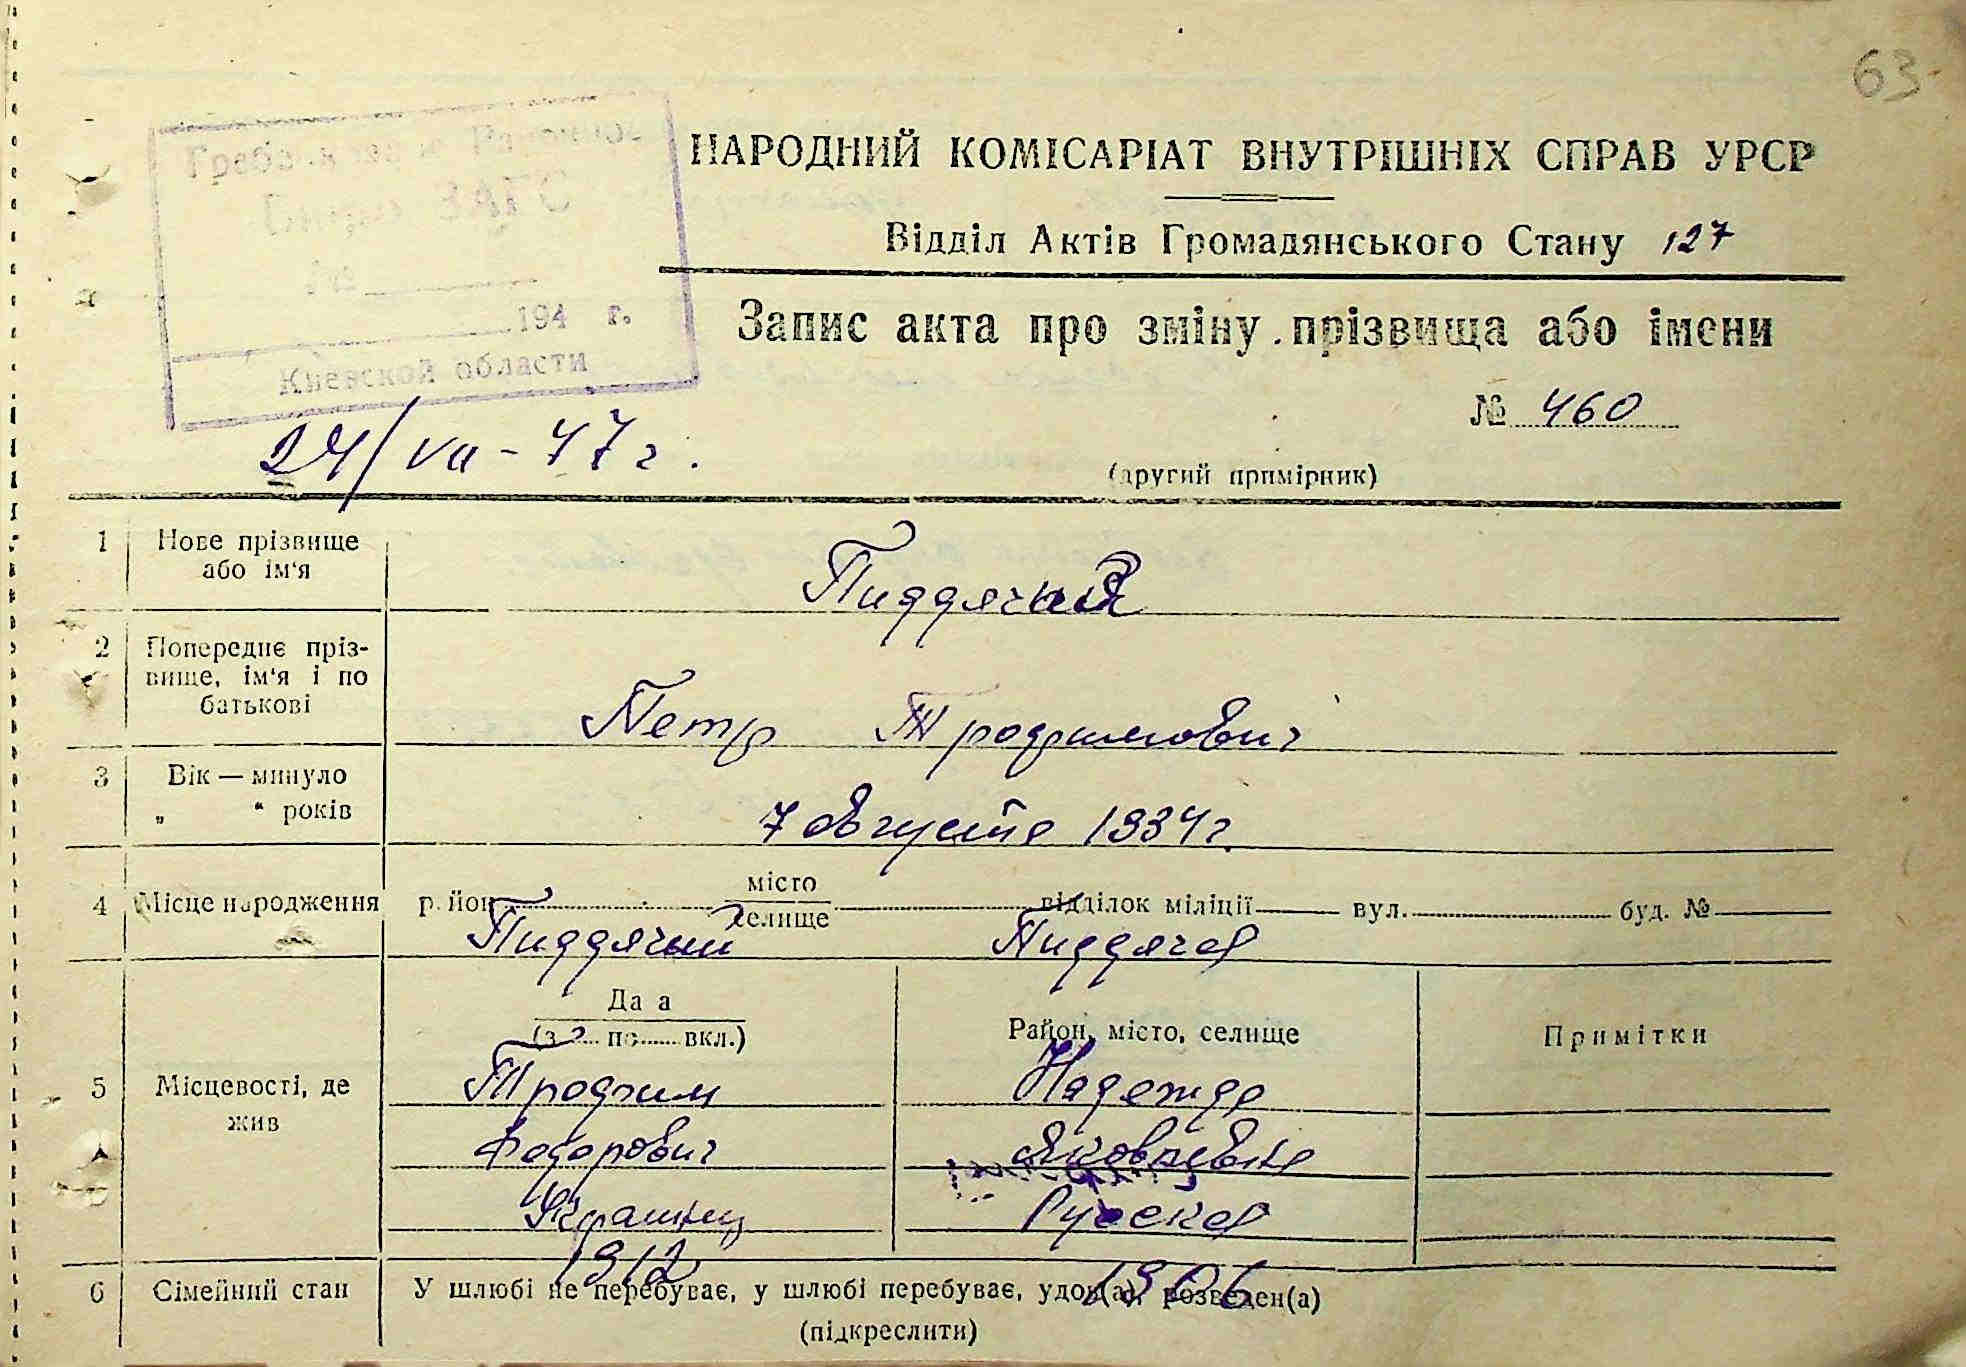 63
ЗАГС
194 г.
Киевской области
НАРОДНИЙ КОМІСАРІАТ ВНУТРІШНІХ СПРАВ УРСР
Відділ Актів Громадянського Стану 127
Запис акта про зміну прізвища або імени
№ 460
24/VII-47 г.
(другий примірник)
1 Нове прізвище або ім'я
Пиддячий
2 Попереднє пріз-
вище, ім'я і по
батькові
Петр Трофимович
3 Вік — минуло
„ “ років
7 августа 1934 г.
4 Місце народження район місто селище відділок міліції вул. буд. №
Пиддячий Пиддячая
5 Місцевості, де
жив
Дата
(з по вкл.)
Район, місто, селище
Примітки
Трофим Надежда
Федорович Яковлевна
Украинец Русская
1912 1906
6 Сімейний стан У шлюбі не перебуває, у шлюбі перебуває, удов(а), розведен(а)
(підкреслити)